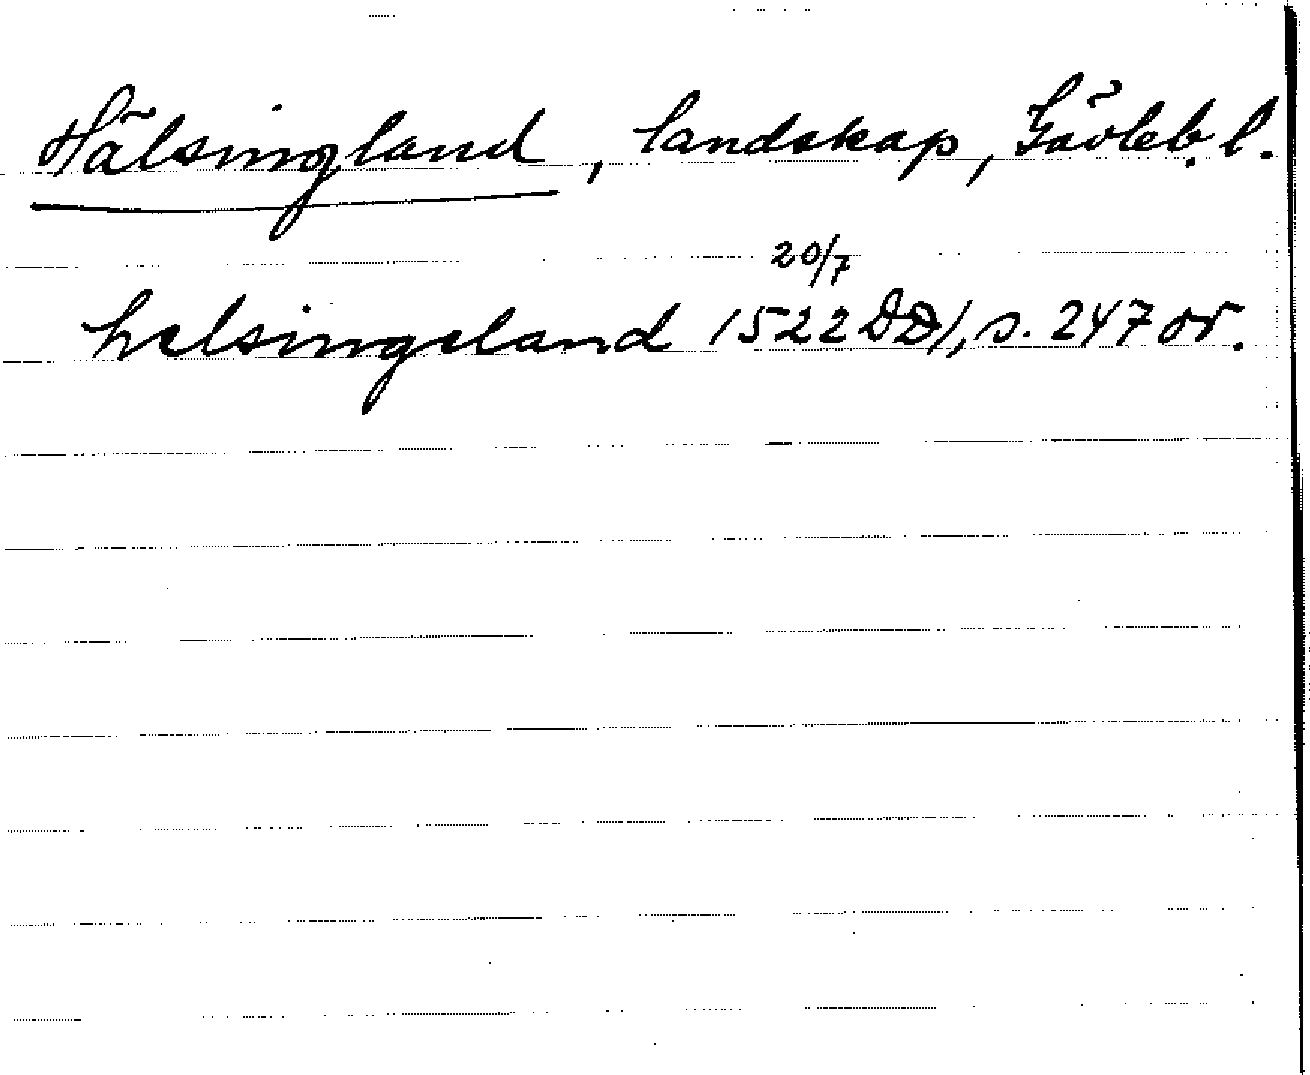 Hälsingland, landskap, Gävleb. l.
20/7
helsingeland 1522 DD1, s. 247 or.